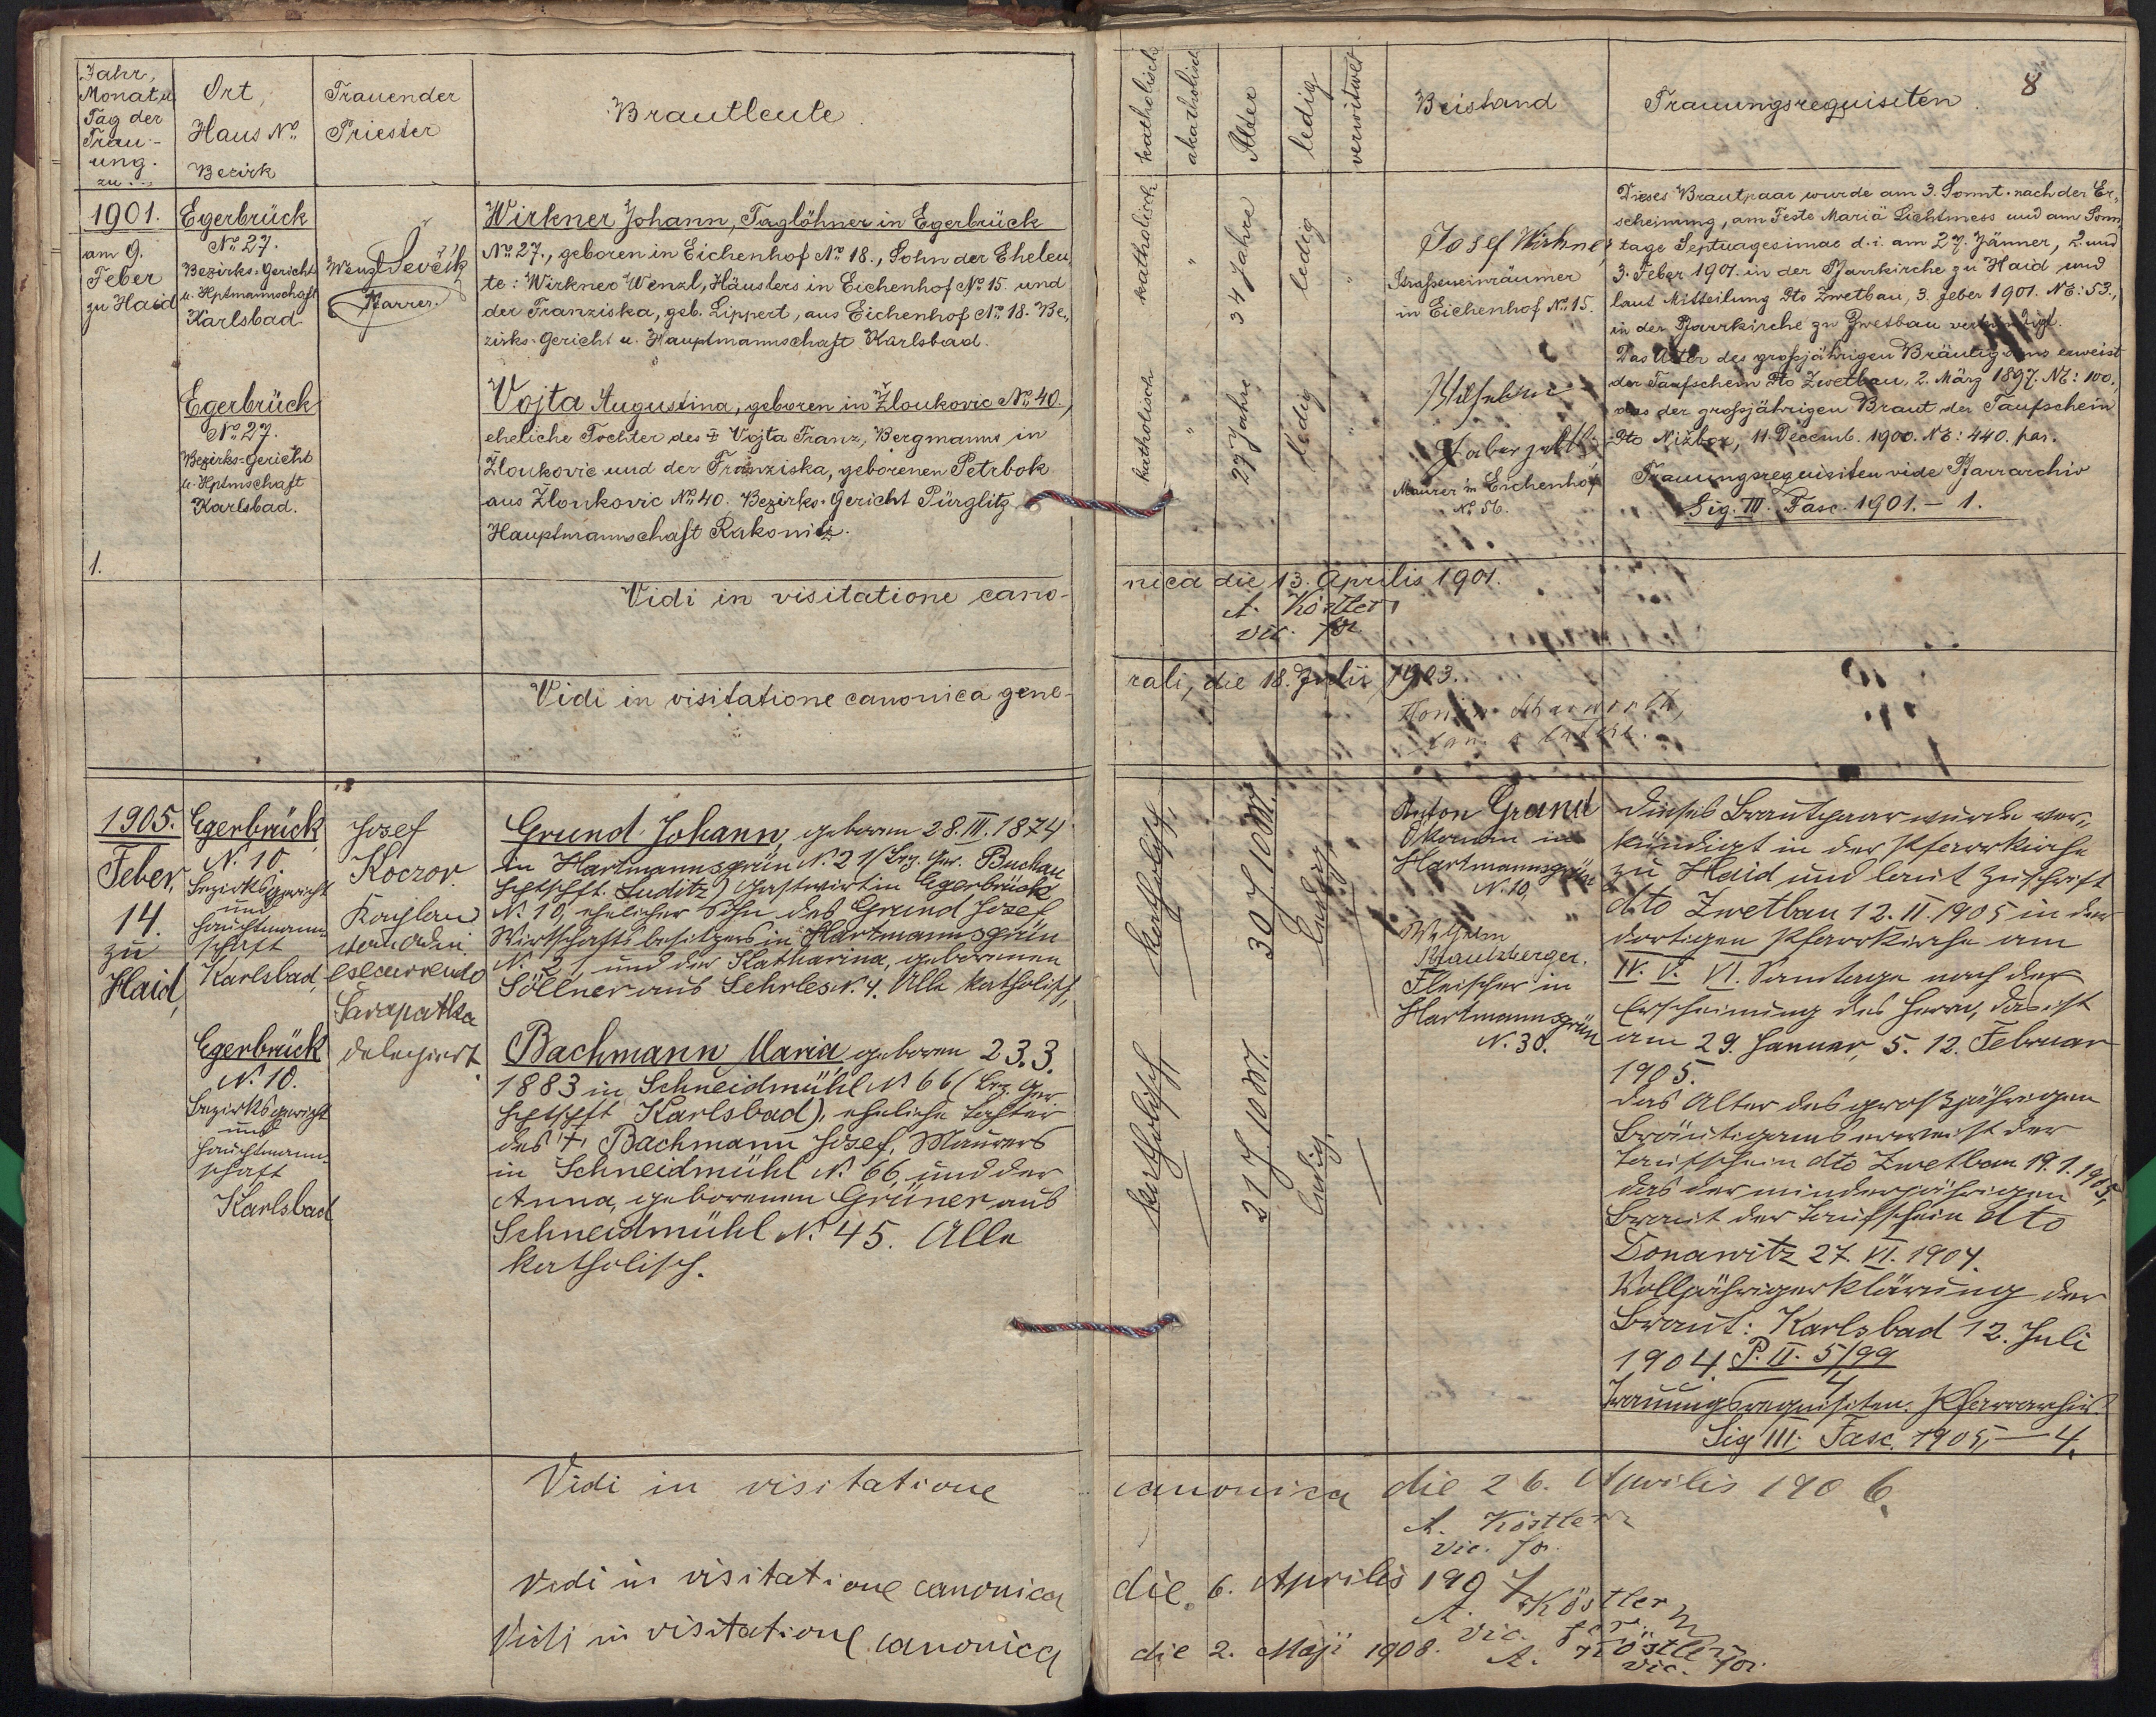 Jahr,
Monat u.
Tag der
Trau-
ung.
zu...
Ort,
Haus No.
Bezirk
Trauender
Priester
Brautleute.
1901.
am 9.
Feber
zu Haid
1.
Egerbrück
No. 27.
Bezirks-Gericht
u. Hptmannschaft
Karlsbad
Wenzl Sevčik
Pfarrer.
Wirkner Johann, Taglöhner in Egerbrück
No. 27., geboren in Eichenhof No. 18., Sohn der Eheleu„
te: Wirkner Wenzl, Häuslers in Eichenhof No. 15. und
der Franziska, geb. Lippert, aus Eichenhof No. 18. Be„
zirks-Gericht u. Hauptmannschaft Karlsbad.
Egerbrück
No. 27.
Bezirks-Gericht
u. Hptmschaft
Karlsbad.
Vojta Augustina, geboren in Žloukovic No. 40.,
eheliche Tochter des † Vojta Franz, Bergmanns in
Žloukovic und der Franziska, geborenen Petrbok
aus Žloukovic No. 40. Bezirks-Gericht Pürglitz
Hauptmannschaft Rakonitz.
Vidi in visitatione cano-
Vidi in visitatione canonica gene-
1905.
Feber,
14.
zu
Haid,
Egerbrück
N. 10.
Bezirksgericht
und
Hauptmann-
schaft
Karlsbad,
Josef
Koczor.
Kaplan
von Odin
excurrendo
Šarapatka
delegiert.
Grund Johann, geboren 28. III. 1874
in Hartmannsgrün N. 21 (Bez. Ger. Buchau
Hptschft. Luditz) Gastwirt in Egerbrück
N. 10, ehelicher Sohn des Grund Josef,
Wirtschaftsbesitzers in Hartmannsgrün
N. 21, und der Katharina, geborenen
Söllner aus Sehrles N. 4. Alle katholisch,
Egerbrück
N. 10.
Bezirksgericht
und
Hauptmann-
schaft
Karlsbad
Bachmann Maria, geboren 23.3.
1883 in Schneidmühl N. 66 (Bez. Ger
Hptschft Karlsbad), eheliche Tochter
des † Bachmann Josef, Maurers
in Schneidmühl N. 66, und der
Anna, geborenen Grüner aus
Schneidmühl N. 45. Alle
katholisch.
Vidi in visitatione
Vidi in visitatione canonica
Vidi in visitatione canonica
katholisch
akatholisch
Alter
ledig
verwitwet
Beistand
Trauungsrequisiten.
8
katholisch
"
34 Jahre
ledig
"
Josef Wirkner,
Strasseneinräumer
in Eichenhof No. 15.
katholisch
"
27 Jahre
ledig
"
Maurer in Eichenhof
No. 56.
Dieses Brautpaar wurde am 3. Sonnt. nach der Er„
scheinung, am Feste Mariä Lichtmess und am Sonn„
tage Septuagesimae d. i. am 27. Jänner, 2. und
3. Feber 1901. in der Pfarrkirche zu Haid und
laut Mitteilung dto Zwetbau, 3. Feber 1901. NE: 53.,
in der Pfarrkirche zu Zwetbau verkündigt.
Das Alter des grossjährigen Bräutigams erweist
der Taufschein dto Zwetbau, 2. März 1897. NE: 100.,
das der grossjährigen Braut der Taufschein
dto Nižbor, 11. Decemb. 1900. NE: 440. par.
Trauungsrequisiten vide Pfarrarchiv
Sig. III. Fasc. 1901. – 1.
nica die 13. Aprilis 1901.
A. Köstler
vic. for.
rali, die 18. Julii 1903.
katholisch
30 J 10 M.
ledig
Anton Grund
Ökonom in
Hartmannsgrün
N. 10,
katholisch
21 J 10 M.
ledig,
Wilhelm
Krautzberger.
Fleischer in
Hartmannsgrün
N. 30.
Dieses Brautpaar wurde ver„
kündigt in der Pfarrkirche
zu Haid und laut Zuschrift
dto Zwetbau 12. II. 1905 in der
dortigen Pfarrkirche am
IV. V. VI. Sonntage nach der
Erscheinung des Herrn, das ist
am 29. Januar, 5. 12. Februar
1905.
Das Alter des großjährigen
Bräutigams erweist der
Taufschein dto Zwetbau 19. 1. 1905,
das der minderjährigen
Braut der Taufschein dto
Donawitz 27. VI. 1904.
Volljährigerklärung der
Braut: Karlsbad 12. Juli
1904 P. II. 5/99
4
Trauungsrequisiten. Pfarrarchiv.
Sig III. Fasc. 1905, – 4.
canonica die 26. Aprilis 1906.
A. Köstler
vic. for.
die 6. Aprilis 1907
A. Köstler
vic. for.
die 2. Maji 1908.
A. Köstler
vic. for.